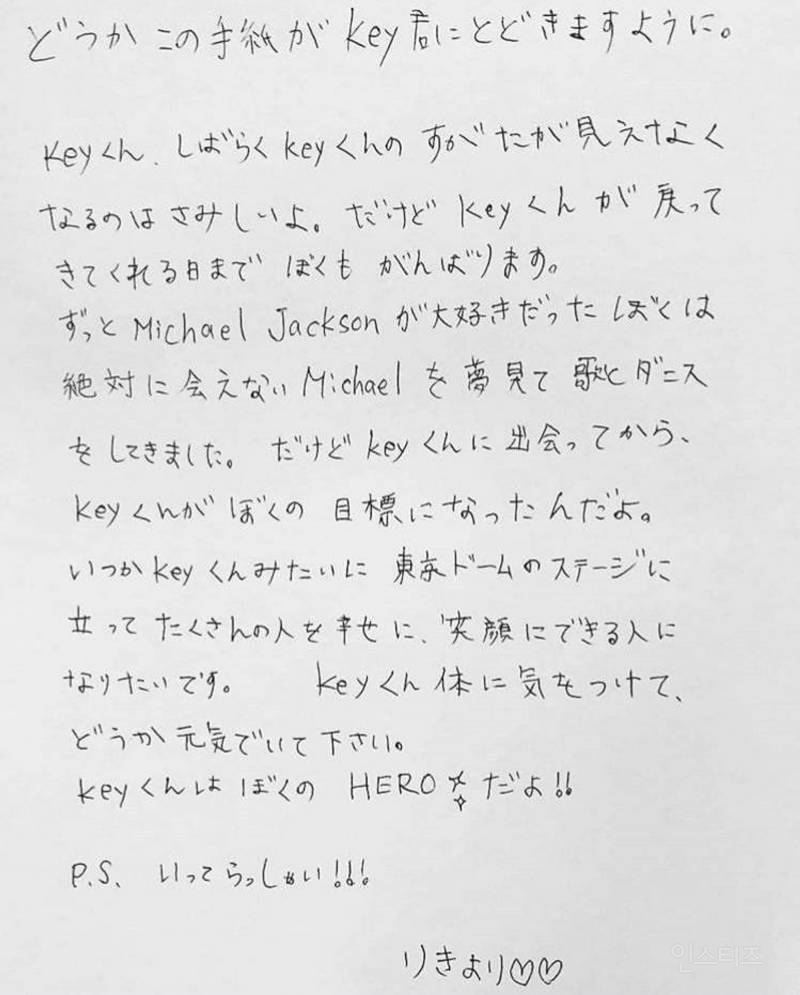 どうかこの手紙がkey君にとどきますように。
keyくん、しばらくkeyくんのすがたが見えなく
なるのはさみしいよ。だけどkeyくんが戻って
きてくれる日までぼくもがんばります。
ずっとMichael Jacksonが大好きだったぼくは
絶対に会えないMichaelを夢見て歌とダンス
をしてきました。だけどkeyくんに出会ってから、
keyくんがぼくの目標になったんだよ。
いつかkeyくんみたいに東京ドームのステージに
立ってたくさんの人を幸せに、笑顔にできる人に
なりたいです。 keyくん体に気をつけて、
どうか元気でいて下さい。
keyくんはぼくのHEROだよ!!
P.S. いってらっしゃい!!!
りきより♡♡
인스티즈